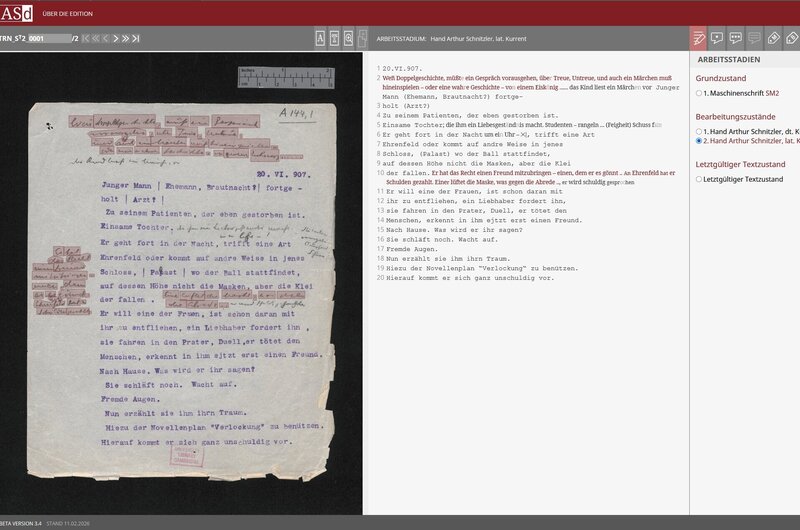 ASd ÜBER DIE EDITION
TRN_ST2 0001 /2
ARBEITSSTADIUM: Hand Arthur Schnitzler, lat. Kurrent
inches 1 2
A 144,1
20. VI. 907.
Junger Mann | Ehemann, Brautnacht? | fortge -
holt | Arzt? |
Zu seinem Patienten, der eben gestorben ist.
Einsame Tochter,
Er geht fort in der Nacht, trifft eine Art
Ehrenfeld oder kommt auf andre Weise in jenes
Schloss, | Palast | wo der Ball stattfindet,
auf dessen Höhe nicht die Masken, aber die Klei
der fallen .
Er will eine der Frauen, ist schon daran mit
ihr zu entfliehen, ein Liebhaber fordert ihn ,
sie fahren in den Prater, Duell, er tötet den
Menschen, erkennt in ihm ejtzt erst einen Freund.
Nach Hause. Was wird er ihr sagen?
Sie schläft noch. Wacht auf.
Fremde Augen.
Nun erzählt sie ihm ihrn Traum.
Hiezu der Novellenplan "Verlockung" zu benützen.
Hierauf kommt er sich ganz unschuldig vor.
1 20.VI.907.
2 Weß Doppelgeschichte, müßte ein Gespräch vorausgehen, über Treue, Untreue, und auch ein Märchen muß
hineinspielen – oder eine wahre Geschichte – von einem Eiskönig ..... das Kind liest ein Märchen vor Junger
Mann (Ehemann, Brautnacht?) fortge-
3 holt (Arzt?)
4 Zu seinem Patienten, der eben gestorben ist.
5 Einsame Tochter; die ihm ein Liebesgeständnis macht. Studenten – rangeln ... (Feigheit) Schuss
6 Er geht fort in der Nacht um ein Uhr trifft eine Art
7 Ehrenfeld oder kommt auf andre Weise in jenes
8 Schloss, (Palast) wo der Ball stattfindet,
9 auf dessen Höhe nicht die Masken, aber die Klei
10 der fallen. Er hat das Recht einen Freund mitzubringen – einen, dem er es gönnt .. An Ehrenfeld hat er
Schulden gezahlt. Einer lüftet die Maske, was gegen die Abrede ... er wird schuldig gesprochen
11 Er will eine der Frauen, ist schon daran mit
12 ihr zu entfliehen, ein Liebhaber fordert ihn,
13 sie fahren in den Prater, Duell, er tötet den
14 Menschen, erkennt in ihm ejtzt erst einen Freund.
15 Nach Hause. Was wird er ihr sagen?
16 Sie schläft noch. Wacht auf.
17 Fremde Augen.
18 Nun erzählt sie ihm ihrn Traum.
19 Hiezu der Novellenplan "Verlockung" zu benützen.
20 Hierauf kommt er sich ganz unschuldig vor.
ARBEITSSTADIEN
Grundzustand
1. Maschinenschrift SM2
Bearbeitungszustände
1. Hand Arthur Schnitzler, dt. K
2. Hand Arthur Schnitzler, lat. K
Letztgültiger Textzustand
Letztgültiger Textzustand
BETA VERSION 3.4 STAND 11.02.2026